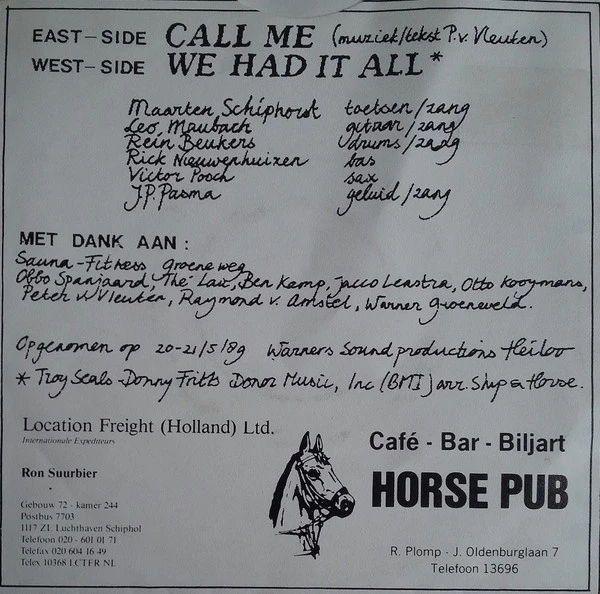 EAST-SIDE CALL ME (muziek/tekst P.v. Vleuten)
WEST-SIDE WE HAD IT ALL*
Maarten Schiphorst toetsen/zang
Leo Maubach gitaar/zang
Rein Beukers drums/zang
Rick Nieuwenhuizen bas
Victor Pooch sax
J.P. Pasma geluid/zang
MET DANK AAN:
Sauna-Fitness groene weg
Obbo Spanjaard, Thé Lau, Ben Kamp, Jacco Leenstra, Otto Kooymans,
Peter v. Vleuten, Raymond v. Amstel, Warner Groeneveld.
Opgenomen op 20-21/5/89 Warners Sound productions Heiloo
* Troy Seals - Donny Fritts Donor Music, Inc (BMI) arr. Ship a Horse.
Location Freight (Holland) Ltd.
Internationale Expediteurs
Ron Suurbier
Gebouw 72 - kamer 244
Postbus 7703
1117 ZL Luchthaven Schiphol
Telefoon 020 - 601 01 71
Telefax 020 604 16 49
Telex 10368 LCTFR NL
Café - Bar - Biljart
HORSE PUB
R. Plomp - J. Oldenburglaan 7
Telefoon 13696